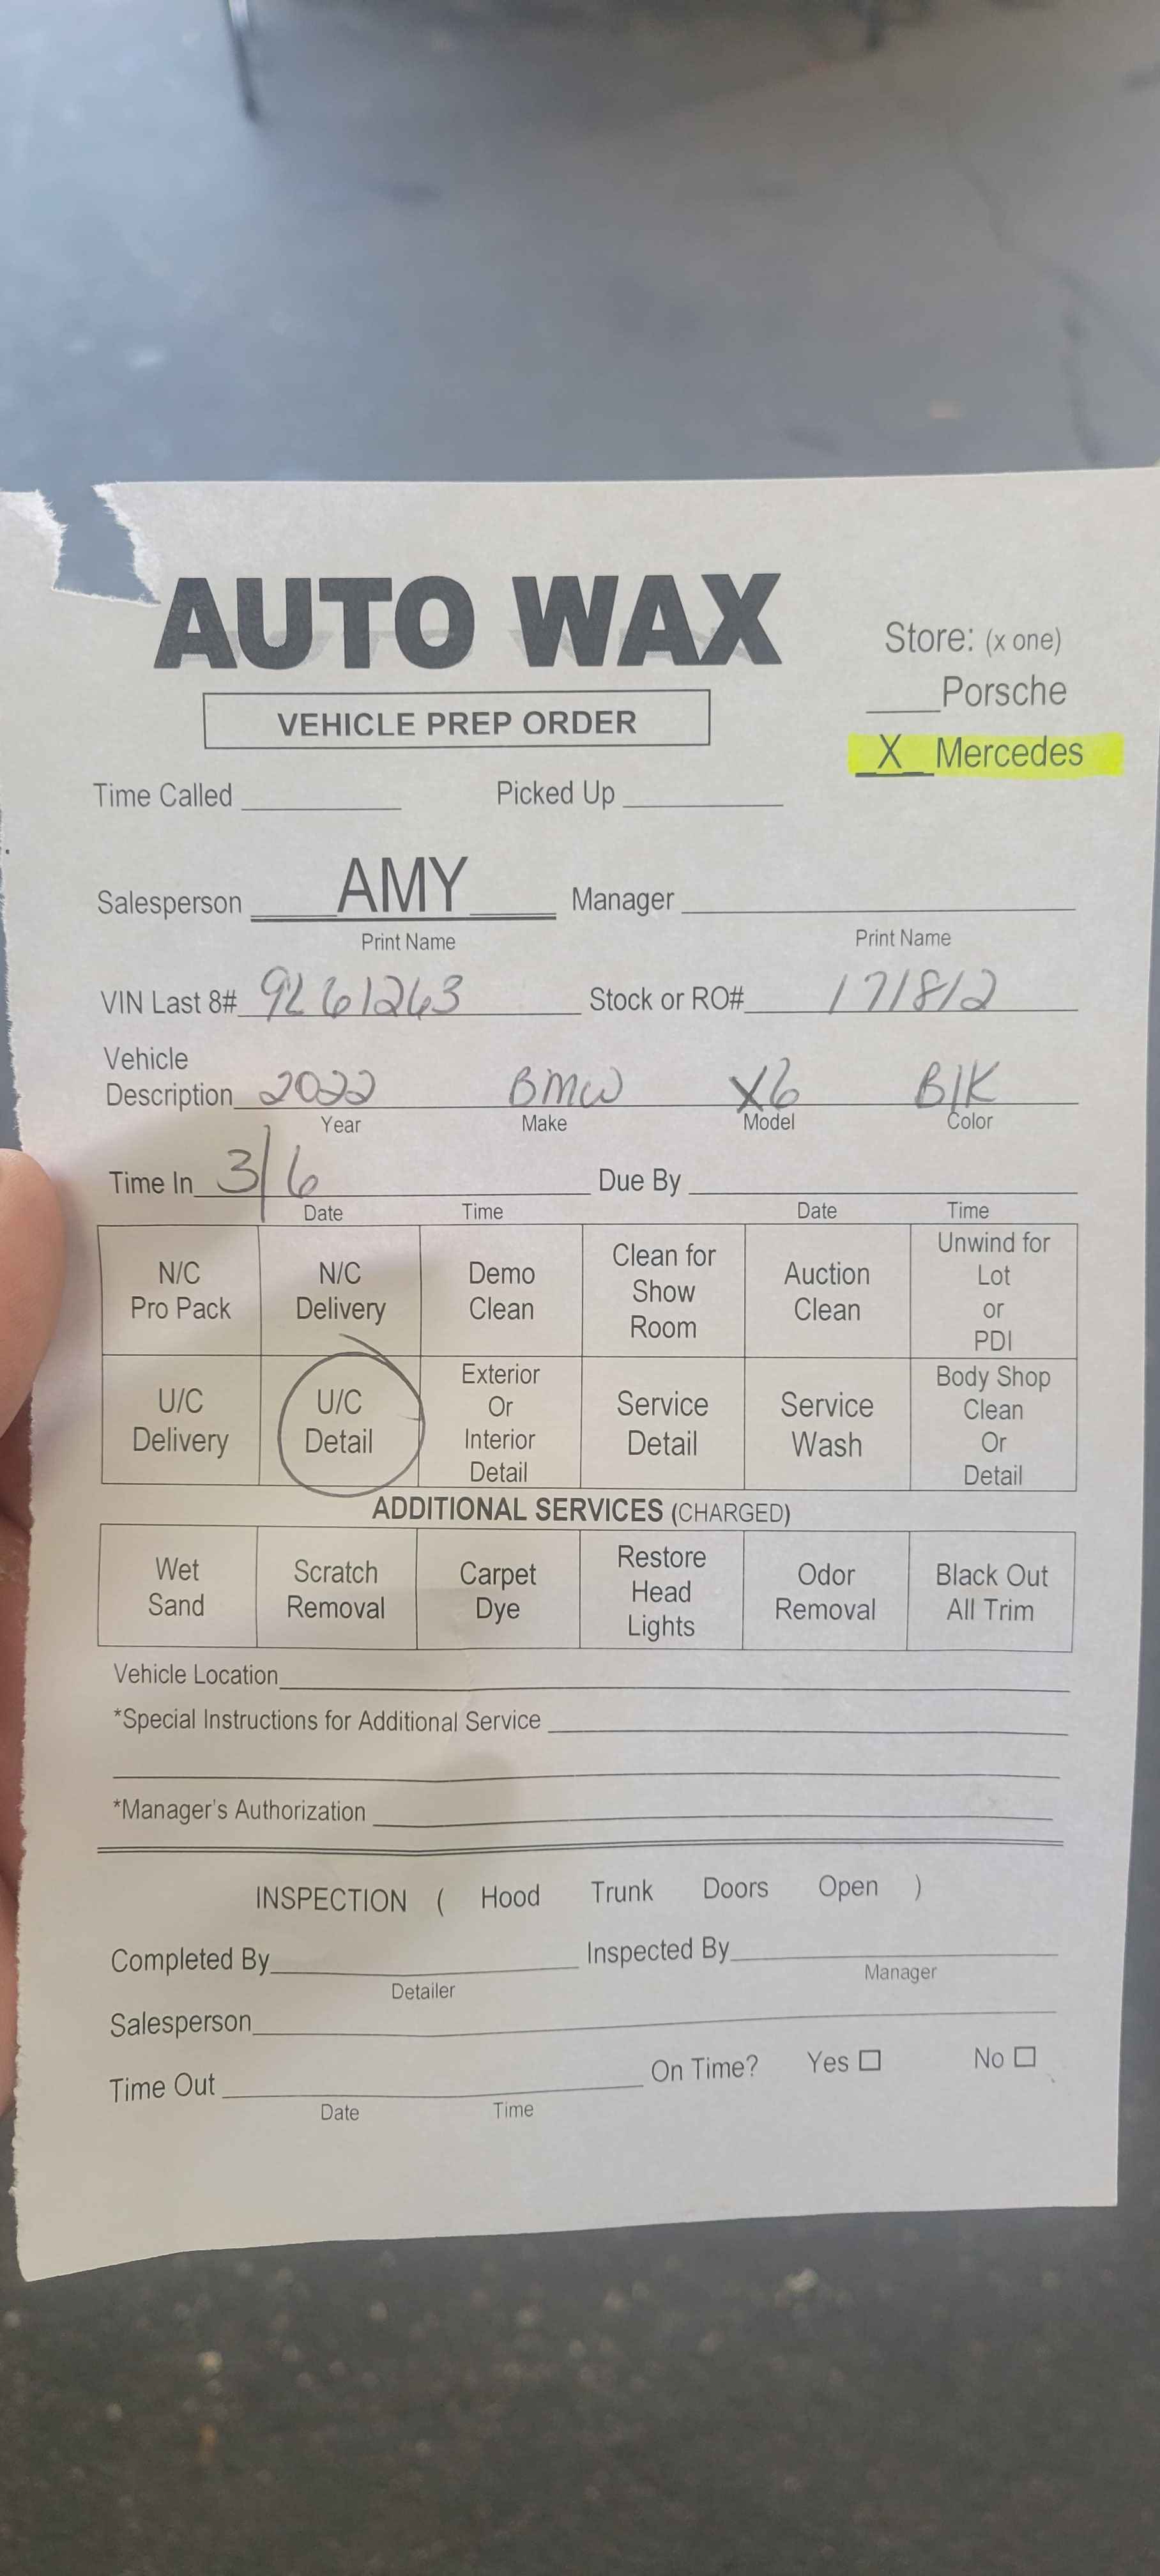 AUTO WAX
Store: (x one)
____Porsche
VEHICLE PREP ORDER
_X_ Mercedes
Time Called ________ Picked Up ________
Salesperson AMY Manager ________
Print Name Print Name
VIN Last 8# 9L61263 Stock or RO# 171812
Vehicle
Description 2022 BMW X6 BlK
Year Make Model Color
Time In 3/6 Due By ________
Date Time Date Time
N/C Pro Pack N/C Delivery Demo Clean Clean for Show Room Auction Clean Unwind for Lot or PDI
U/C Delivery U/C Detail Exterior Or Interior Detail Service Detail Service Wash Body Shop Clean Or Detail
ADDITIONAL SERVICES (CHARGED)
Wet Sand Scratch Removal Carpet Dye Restore Head Lights Odor Removal Black Out All Trim
Vehicle Location ________
*Special Instructions for Additional Service ________
*Manager's Authorization ________
INSPECTION ( Hood Trunk Doors Open )
Completed By ________ Inspected By ________
Detailer Manager
Salesperson ________
Time Out ________ On Time? Yes ☐ No ☐
Date Time